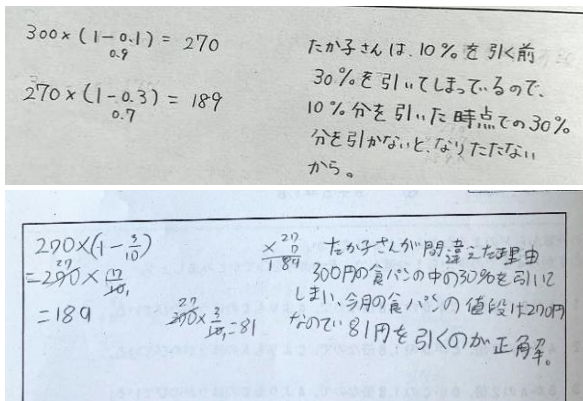 300×(1-0.1)=270
0.9
270×(1-0.3)=189
0.7
たか子さんは、10%を引く前
30%を引いてしまっているので、
10%分を引いた時点での30%
分を引かないと、なりたたない
から。
270×(1-3/10)
=270×7/10
=189
270×3/10=81
27
×
189
たか子さんが間違えた理由
300円の食パンの中の30%を引いて
しまい、今月の食パンの値段は270円
なので、81円を引くのが正解。